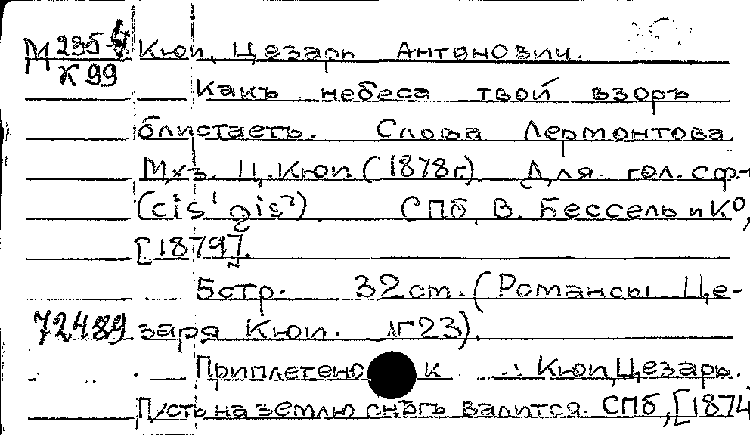 М 235-4 Кюи, Цезарь Антонович.
К 99 Какъ небеса твой взоръ
блистаетъ. Слова Лермонтова.
Муз. Ц. Кюи (1878 г.) Для гол. с ф-
(cis¹ gis²) СПб, В. Бессель и К⁰,
[1879].
5 стр. 32 cm. (Романсы Це-
72489 заря Кюи. №23).
Приплетено к Кюи, Цезарь.
Пусть на землю снѣгъ валится. СПб, [1874